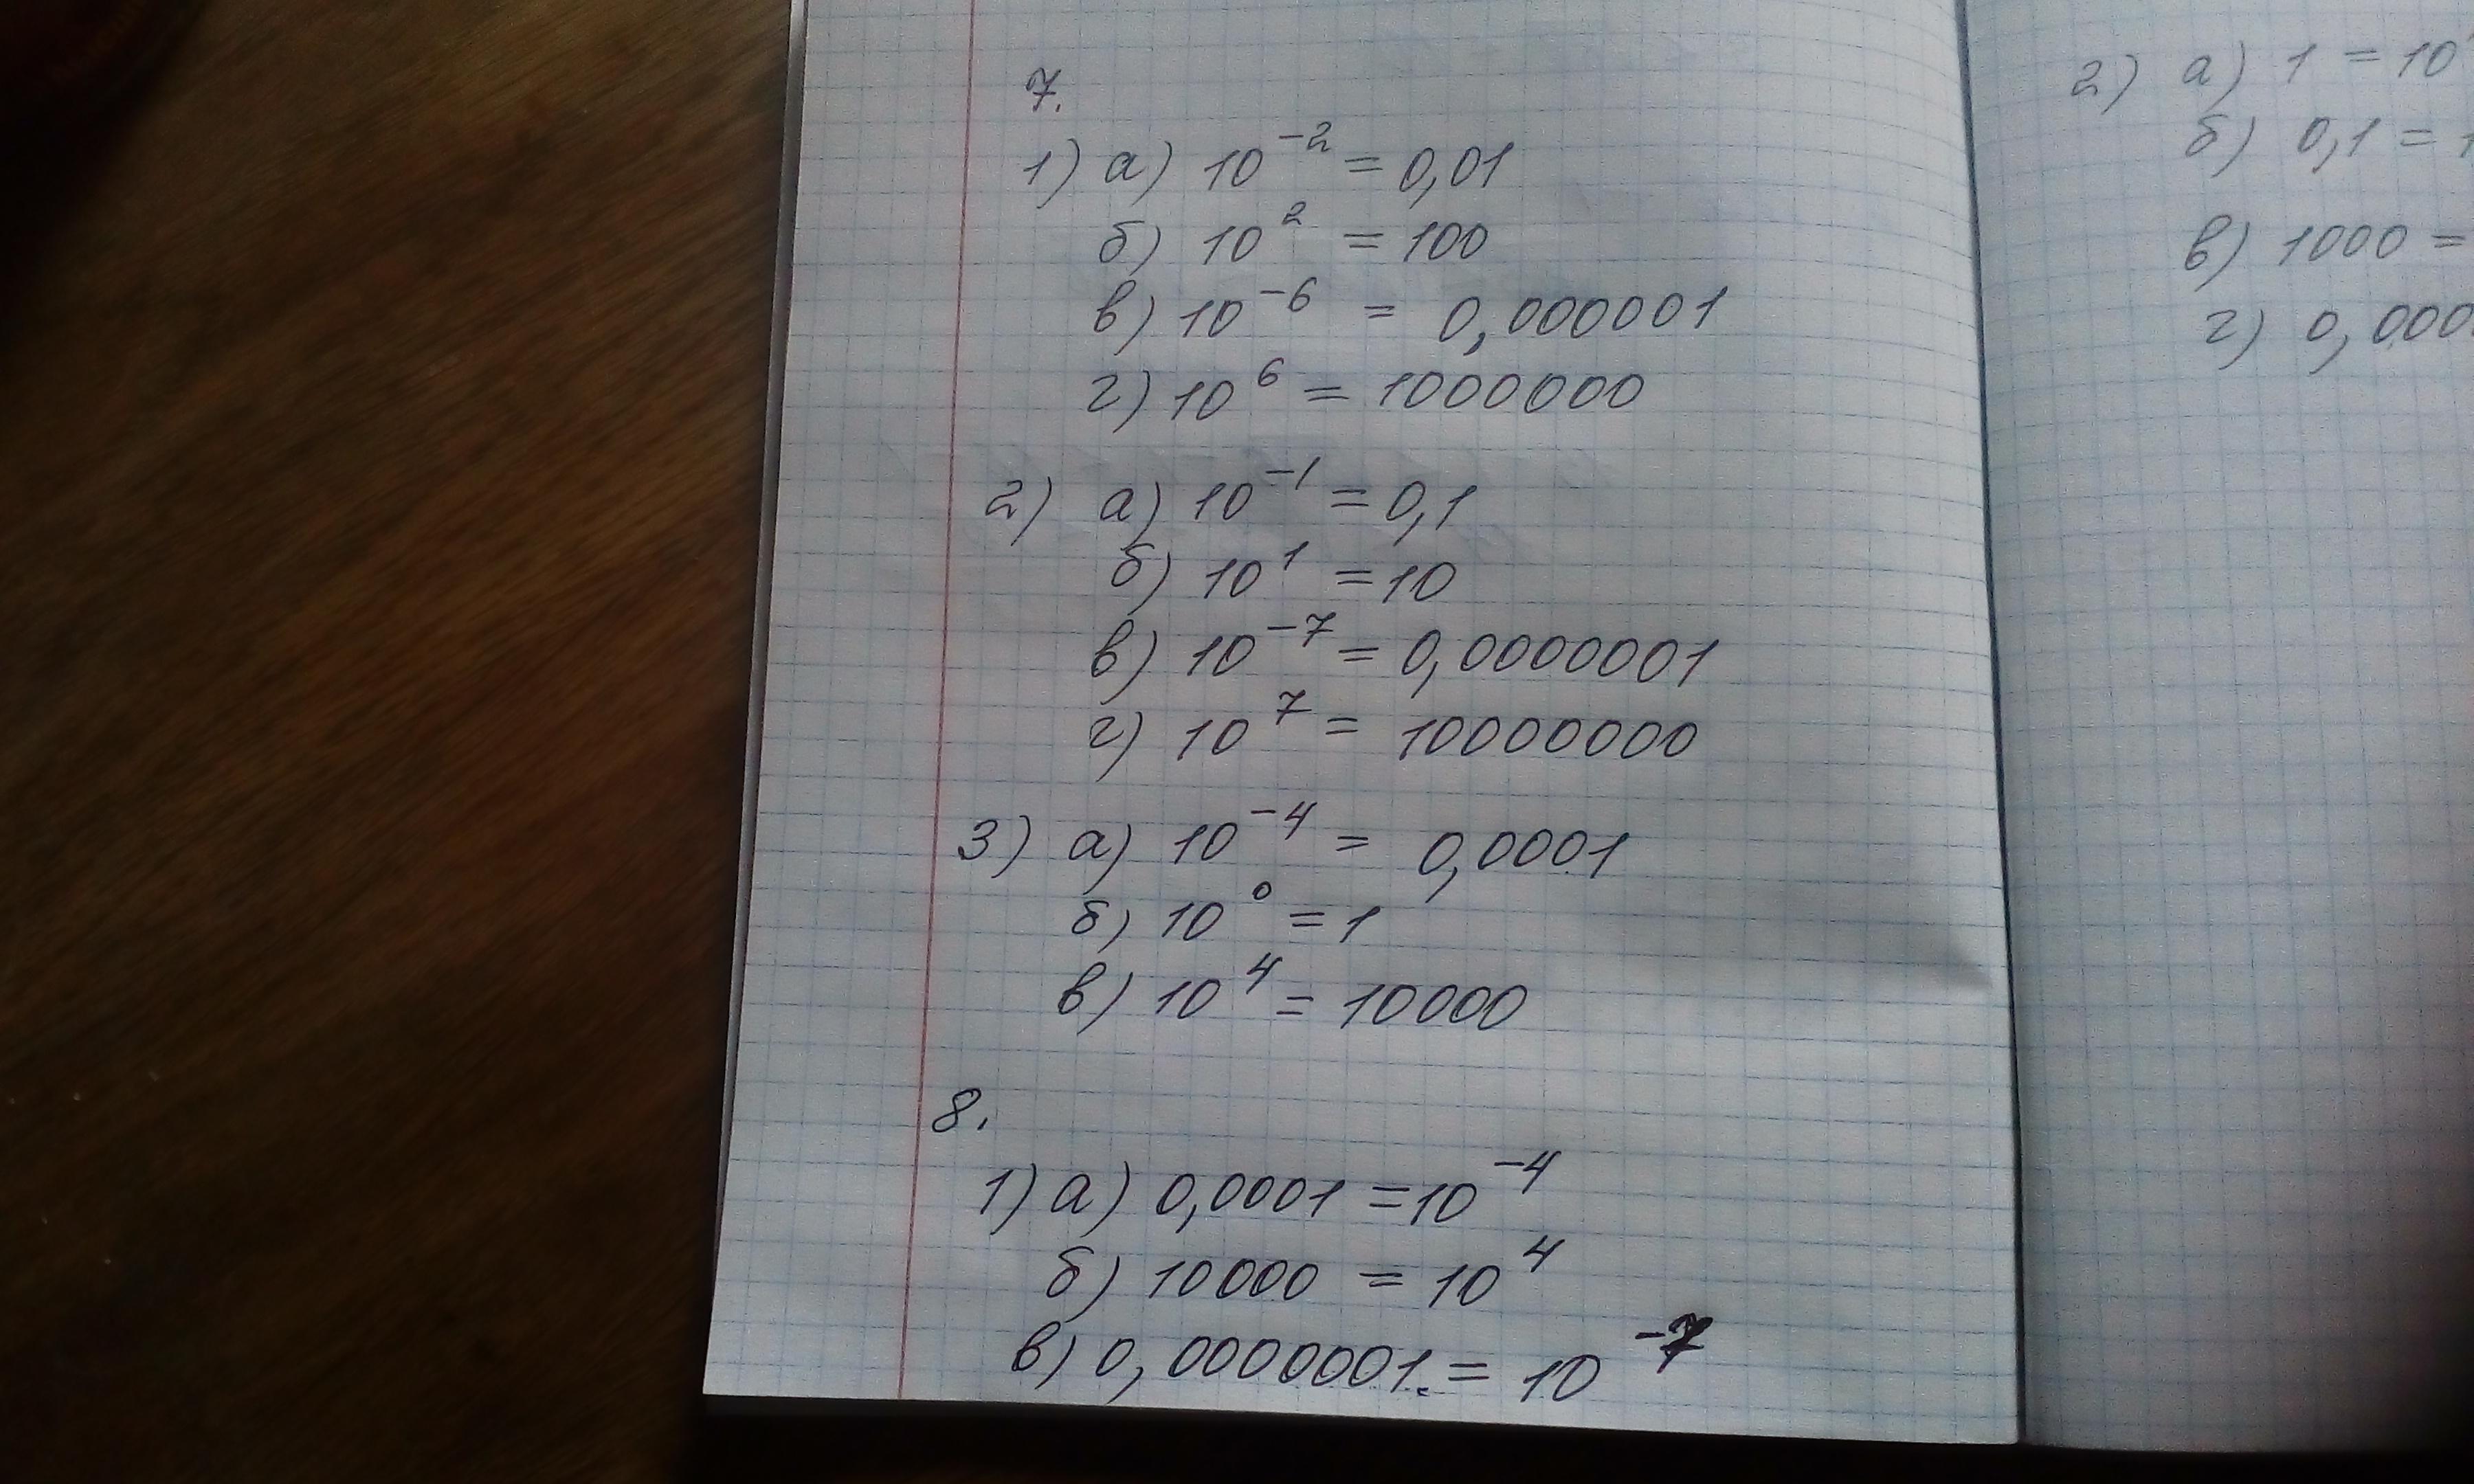 7.
1) а) 10⁻² = 0,01
б) 10² = 100
в) 10⁻⁶ = 0,000001
г) 10⁶ = 1000000
2) а) 10⁻¹ = 0,1
б) 10¹ = 10
в) 10⁻⁷ = 0,0000001
г) 10⁷ = 10000000
3) а) 10⁻⁴ = 0,0001
б) 10⁰ = 1
в) 10⁴ = 10000
8.
1) а) 0,0001 = 10⁻⁴
б) 10000 = 10⁴
в) 0,0000001. = 10⁻⁷
2) а) 1 = 10
б) 0,1 =
в) 1000 =
г) 0,000